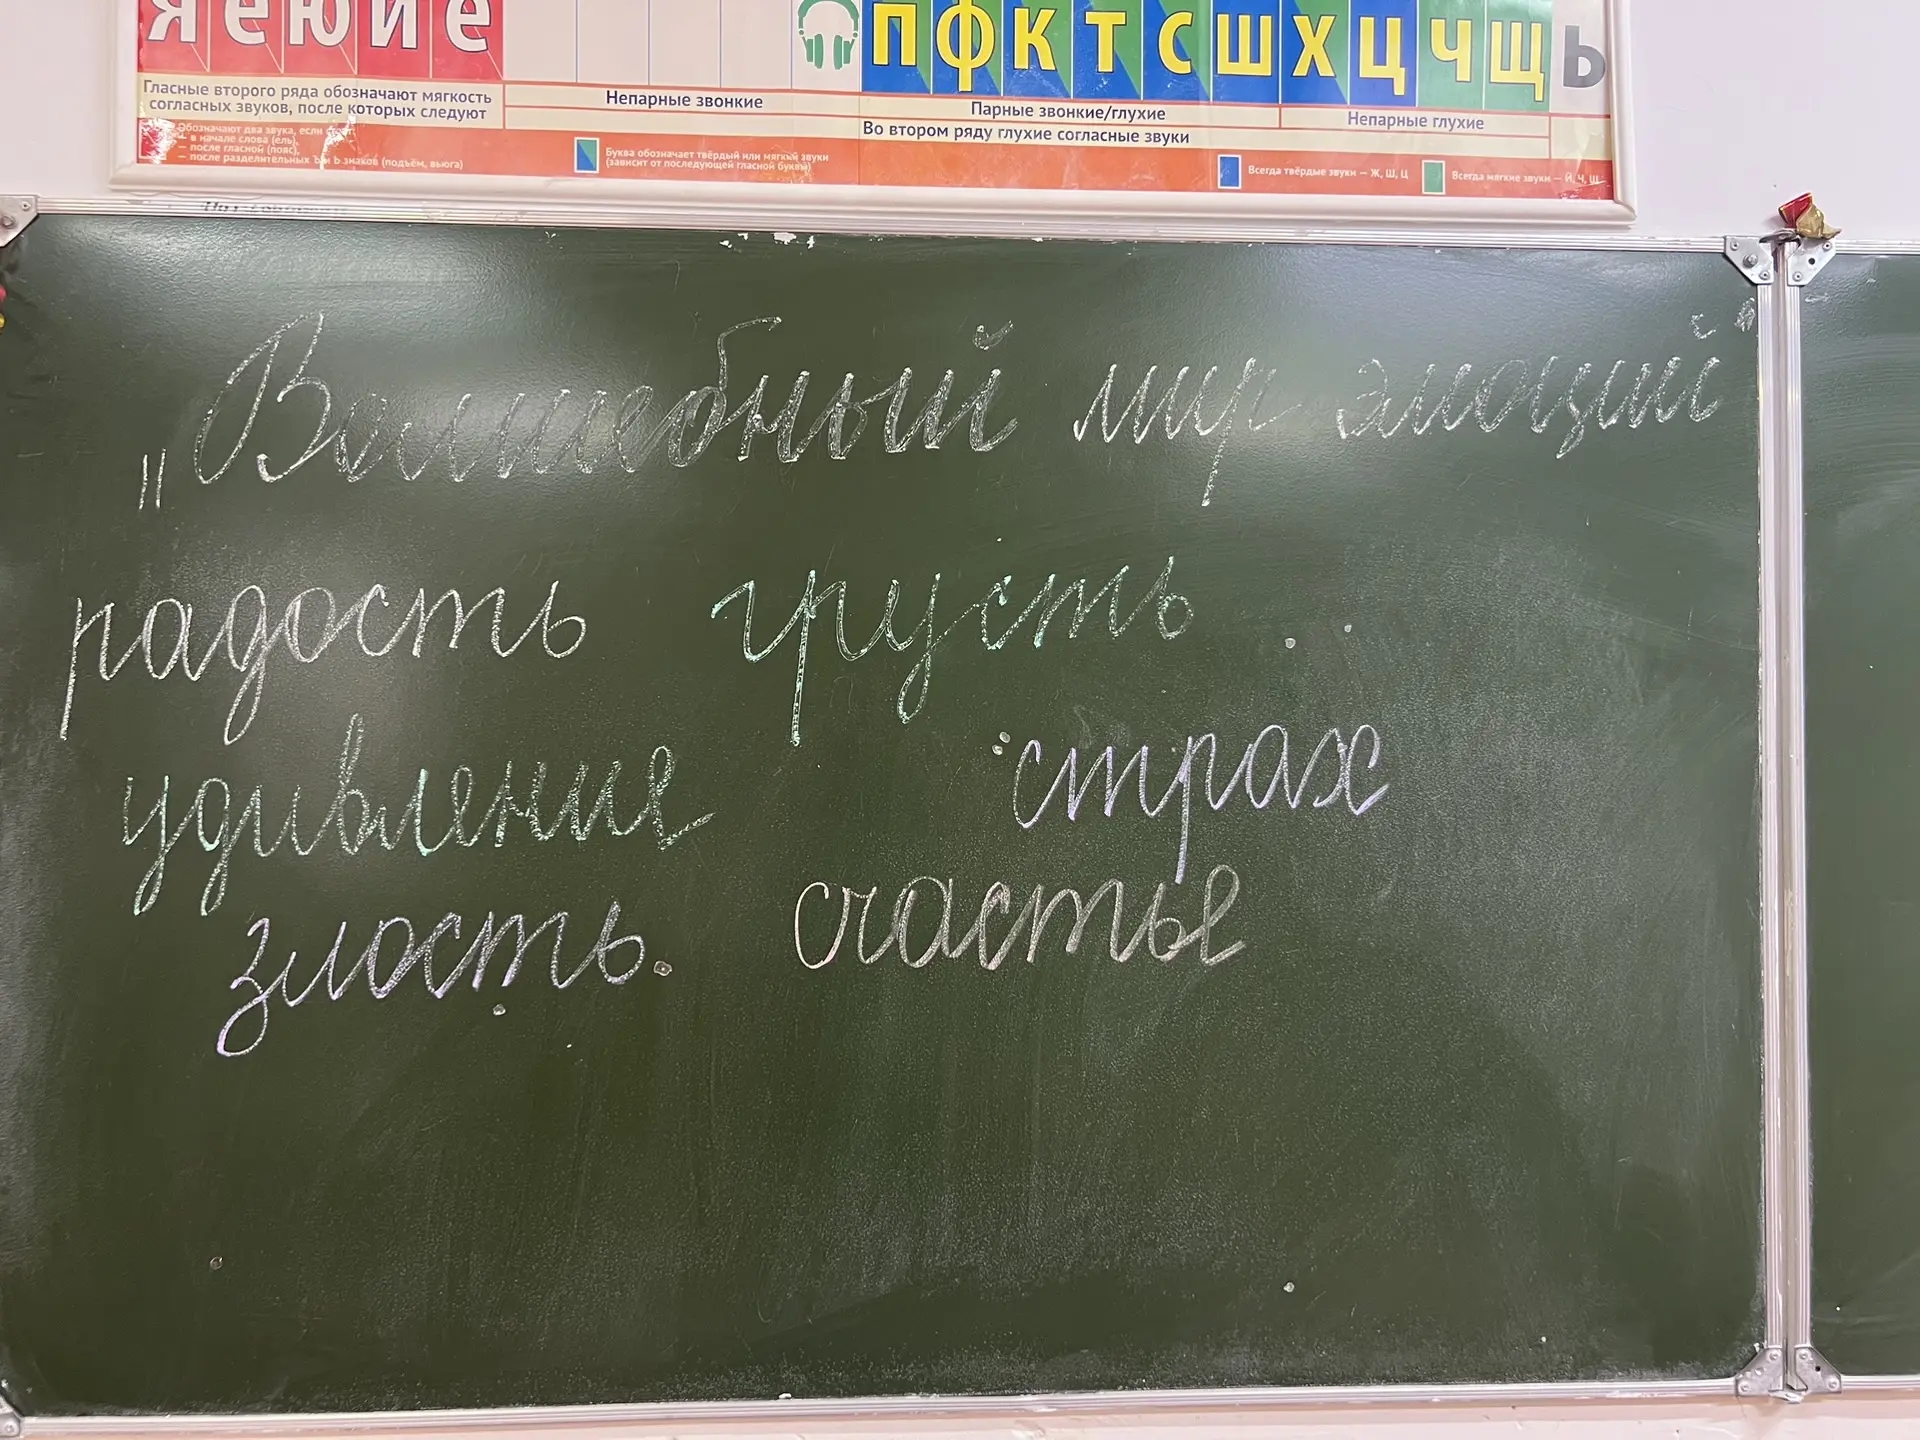 Я Е Ю И Ё П Ф К Т С Ш Х Ц Ч Щ Ь
Гласные второго ряда обозначают мягкость
согласных звуков, после которых следуют
Непарные звонкие
Парные звонкие/глухие
Непарные глухие
Во втором ряду глухие согласные звуки
Обозначают два звука, если стоят:
– в начале слова (ель),
– после гласной (пояс),
– после разделительных Ъ и Ь знаков (подъём, вьюга)
Буква обозначает твёрдый или мягкий звуки
(зависит от последующей гласной буквы)
Всегда твёрдые звуки – Ж, Ш, Ц
Всегда мягкие звуки – Й, Ч, Щ
„Волшебный мир эмоций"
радость грусть
удивление страх
злость. счастье